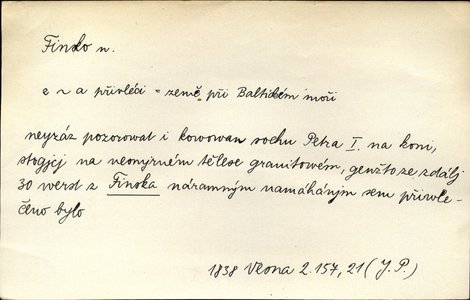 Finsko n.
z ~ a přivléci = země při Baltickém moři
neyráz pozorowat i kowowau sochu Petra I. na koni,
stogjcj na nesmyrném tělese granitowém, genžto ze zdálj
30 werst z Finska náramným namáhánjm sem přiwle-
čeno bylo
1838 Vesna 2.157,21 (J.P.)